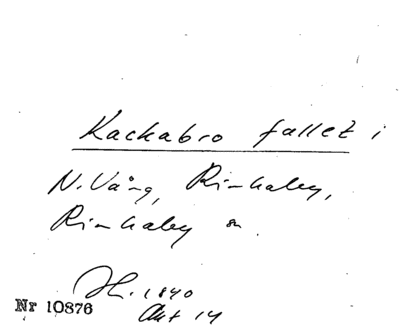 Kackabro fallet i
N. Vång, Rimkaby,
Rimkaby sn.
Ht. 1840
Akt 14
Nr 10876